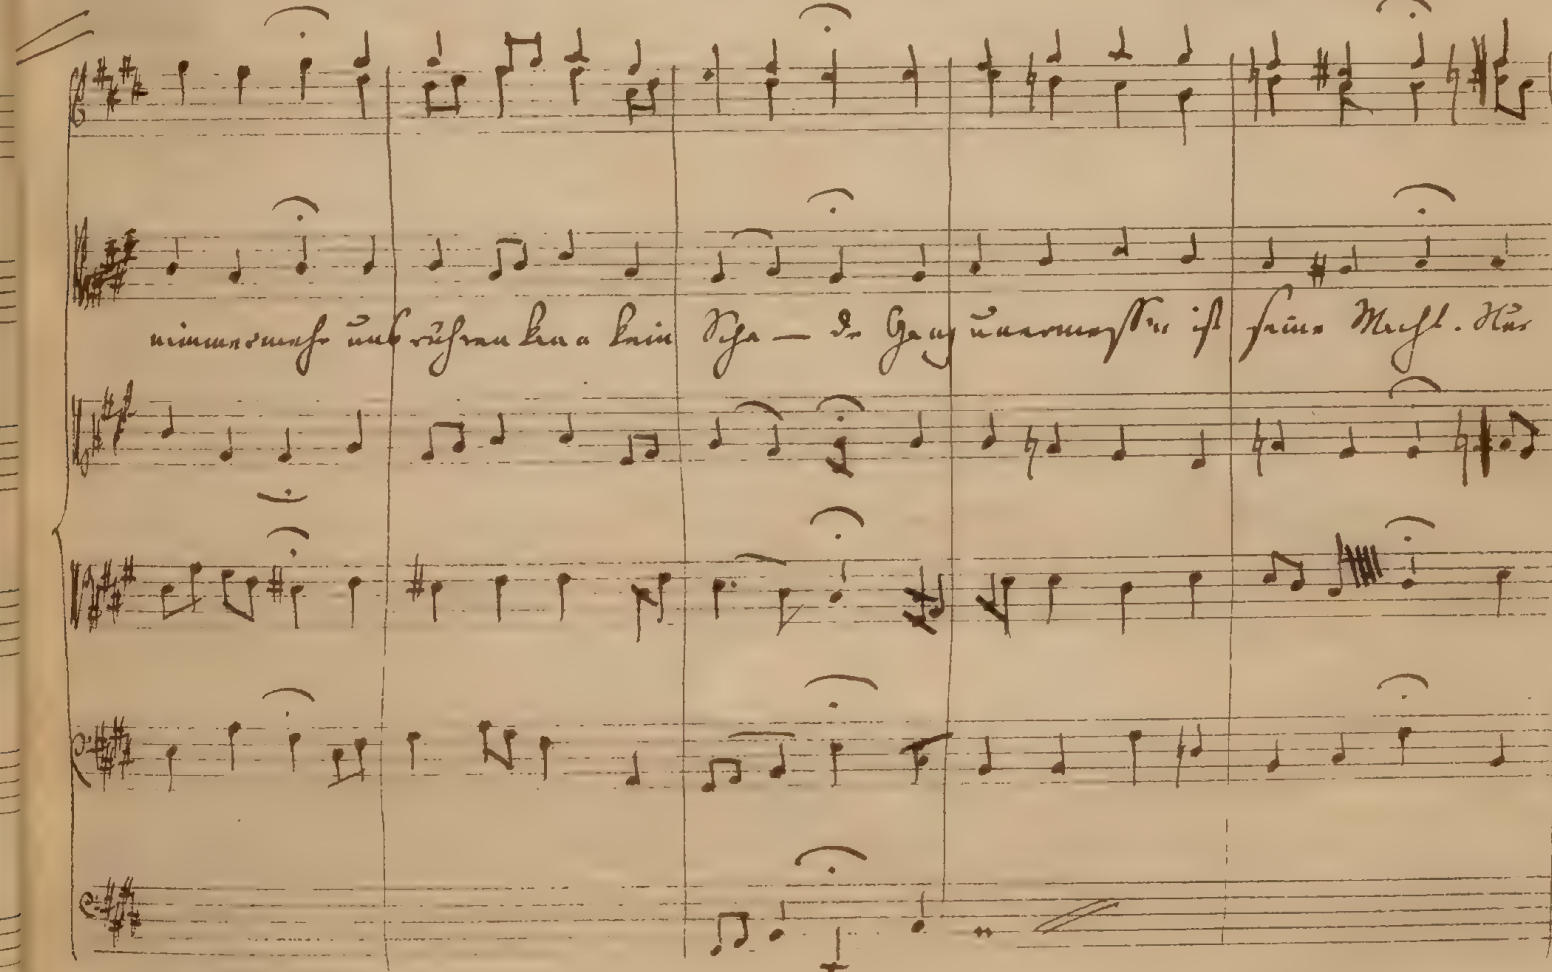 nimmermehr uns rühren kann kein Scha – de Ganz unermessen ist seine Macht. Nur